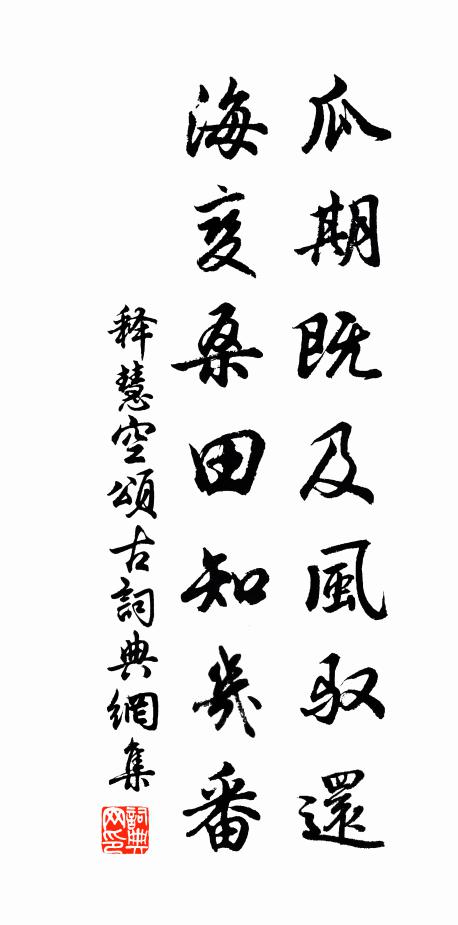 瓜期既及風馭還
海变桑田知幾番
释慧空頌古詞典網集
詞典网印